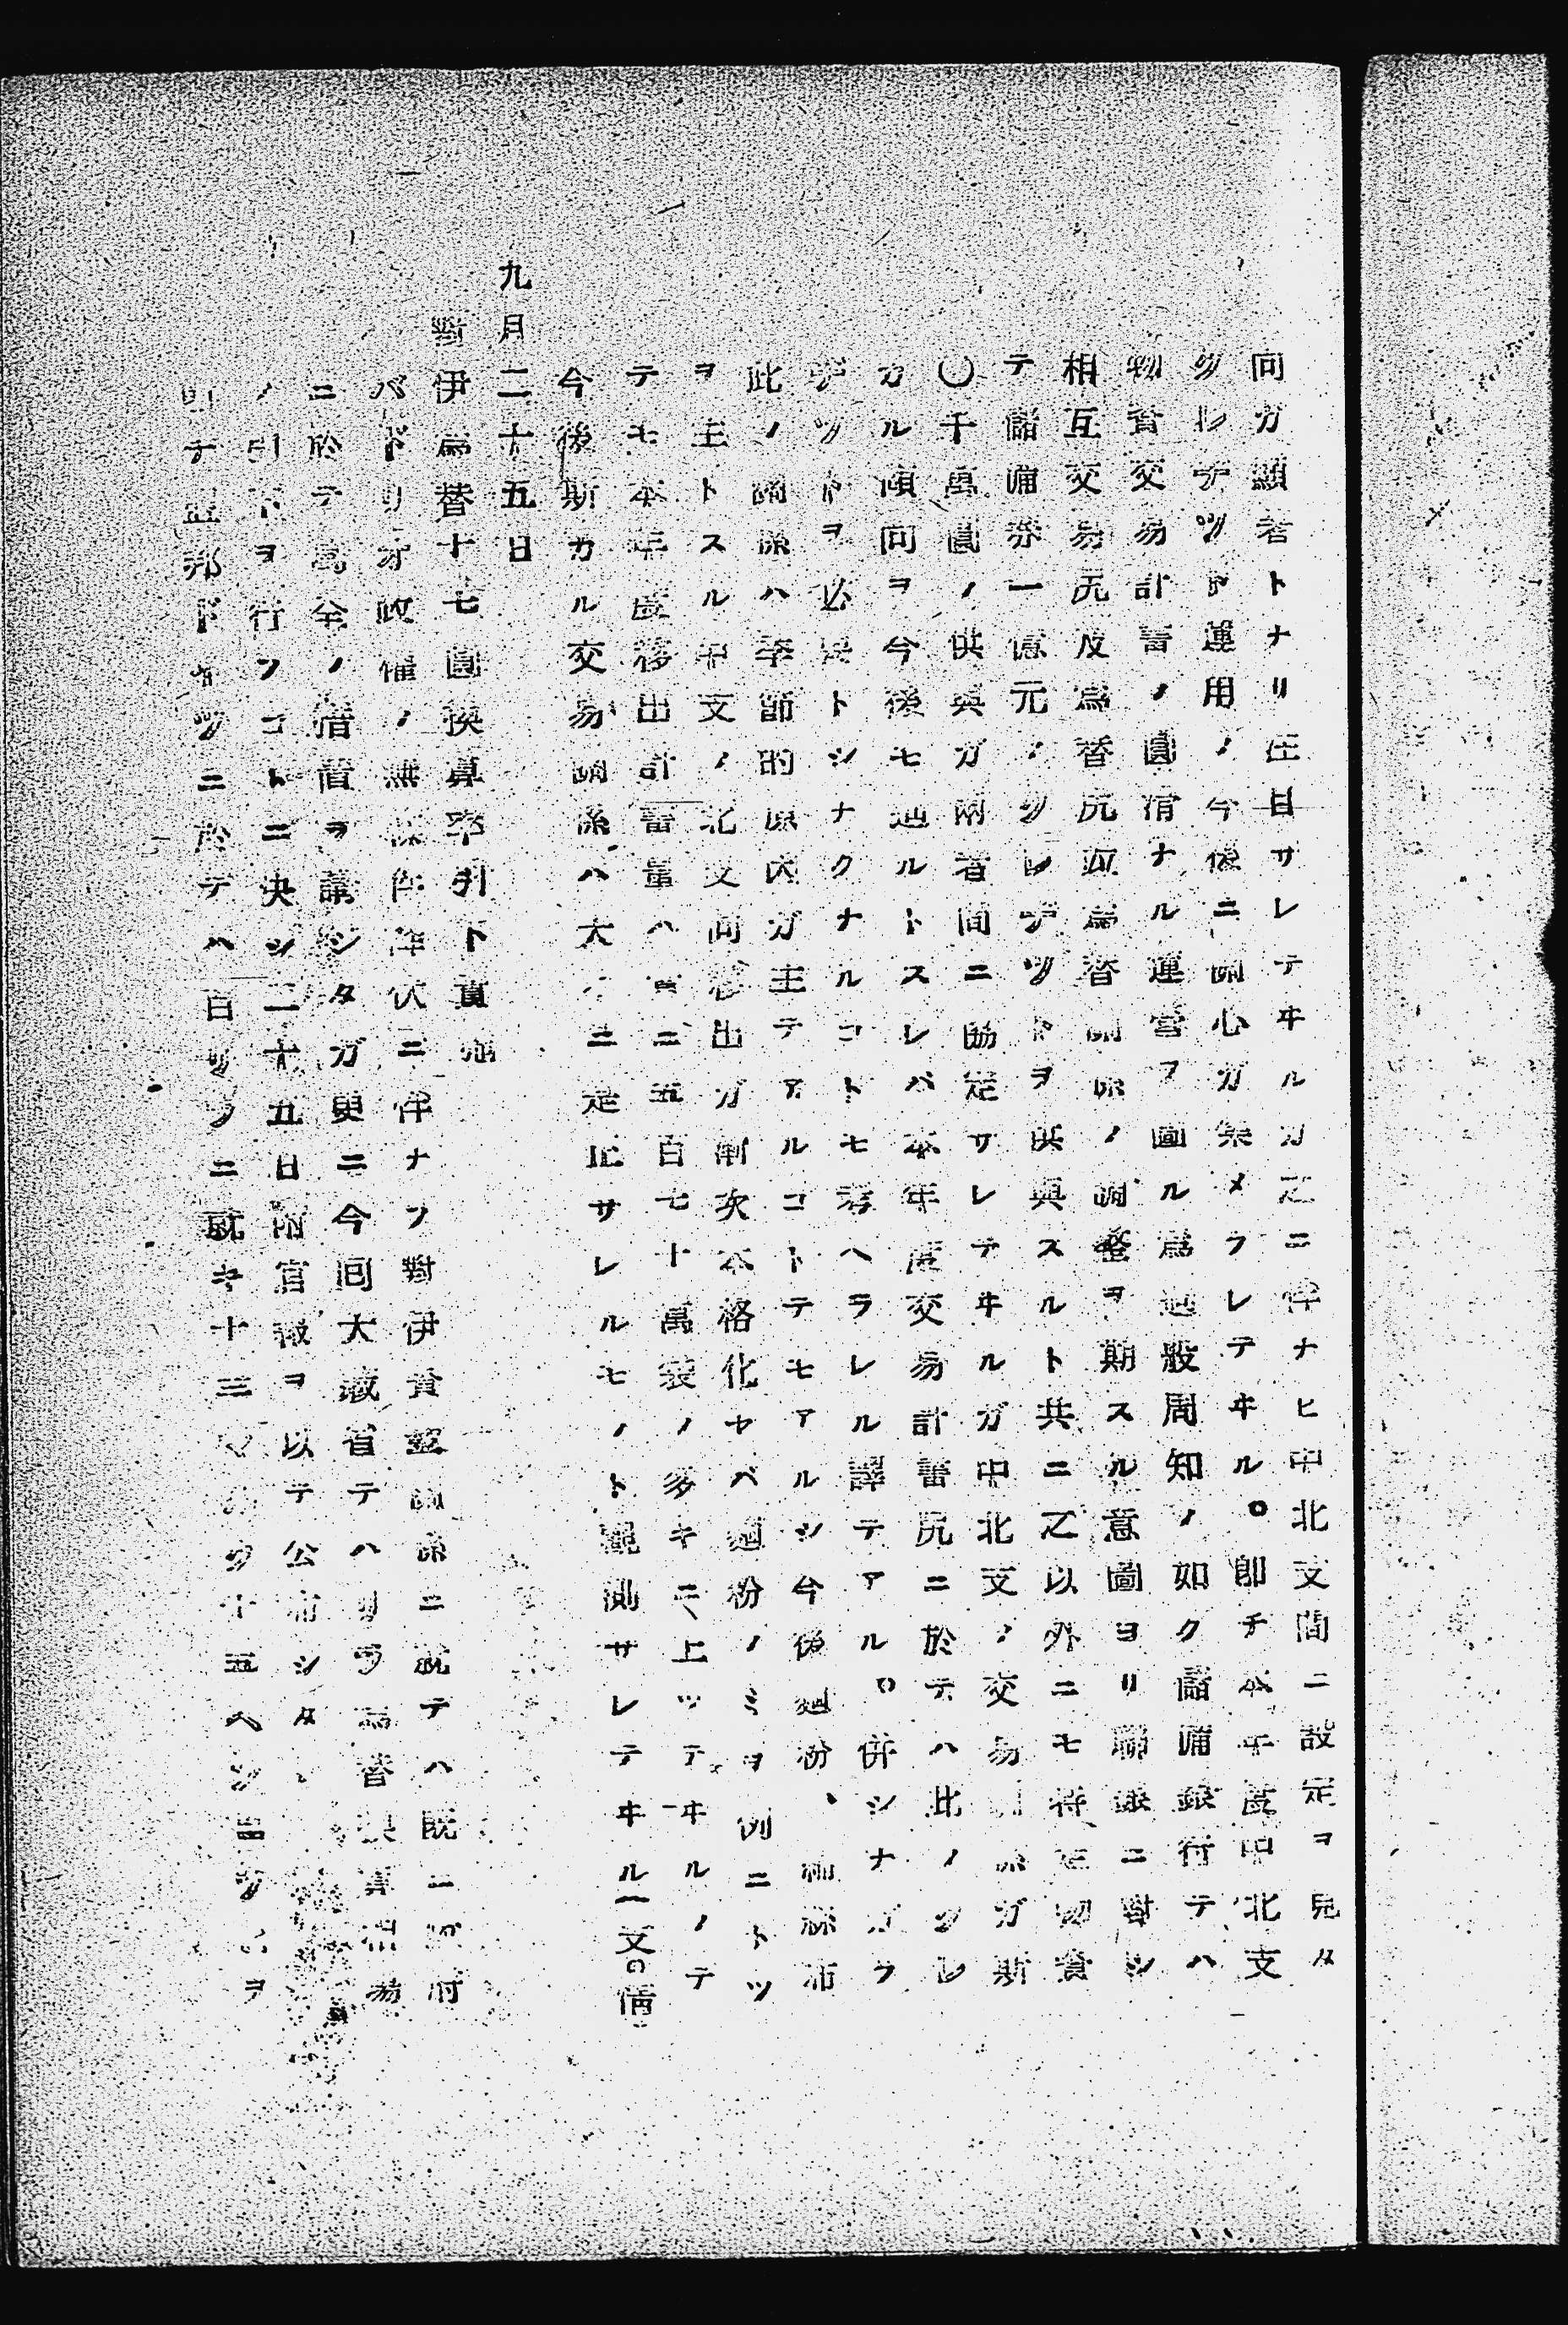 向ガ顯著トナリ注目サレテヰルガ之ニ伴ナヒ中北支間ニ設定ヲ見タ
クレヂット運用ノ今後ニ關心ガ集メラレテヰル。卽チ本年度中北支
物資交易計畫ノ圓滑ナル運營ヲ圖ル爲過般周知ノ如ク儲備銀行テハ
相互交易尻及爲替尻並爲替關係ノ調整ヲ期スル意圖ヨリ聯銀ニ對シ
テ儲備券一億元ノクレヂットヲ供與スルト共ニ之以外ニモ特定物資
〇千萬圓ノ供與ガ兩者間ニ協定サレテヰルガ中北支ノ交易關係ガ斯
カル傾向ヲ今後モ辿ルトスレバ本年度交易計畫尻ニ於テハ此ノクレ
ヂットヲ必要トシナクナルコトモ考ヘラレル譯テアル。併シナガラ
此ノ關係ハ季節的原因ガ主テアルコトテモアルシ今後麺粉、綿糸布
ヲ主トスル中支ノ北支向移出ガ漸次本格化セバ麺粉ノミヲ例ニトツ
テモ本年度移出計畫量ハ實ニ五百七十萬袋ノ多キニ上ツテヰルノテ
今後斯カル交易關係ハ大イニ是正サレルモノト觀測サレテヰル（支。情
九月二十五日
對伊爲替十七圓換算率引下實施
バドリオ政權ノ無條件降伏ニ伴ナフ對伊資金關係ニ就テハ既ニ政府
ニ於テ萬全ノ措置ヲ講ジタガ更ニ今回大藏省テハリラ爲替換算相場
ノ引下ヲ行フコトニ決シ二十五日附官報ヲ以テ公布シタ、
テ盟邦ドイツニ於テハ百リラニ就キ十三マルク十五ペニヒヲ